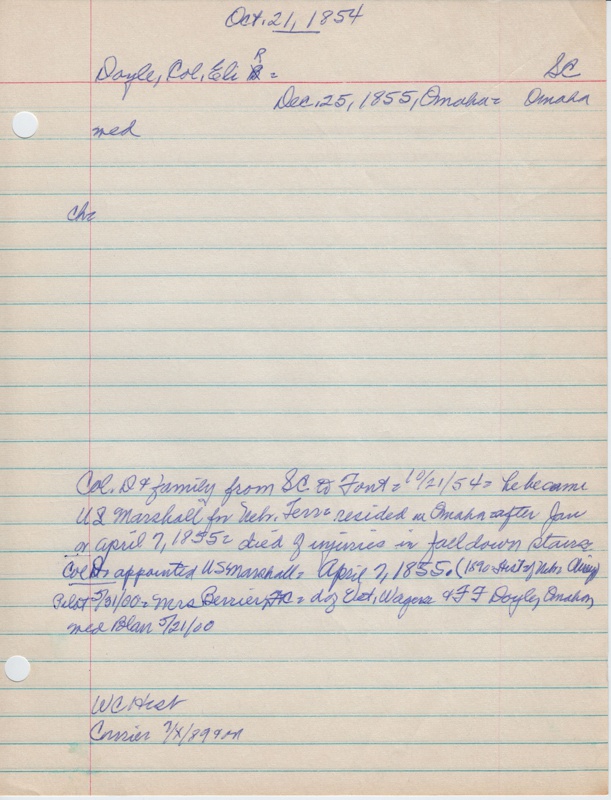 Oct. 21, 1854
Doyle, Col. Eli R = SC
Dec. 25, 1855, Omaha = Omaha
med
ch=
Col. D & family from SC to Font = 10/21/54 = he became
US Marshall for Nebr. Terr = resided in Omaha after Jan
or April 7, 1855 = died of injuries in fall down stairs
Col D = appointed US Marshall = April 7, 1855 = (1890 Hist of Nebr
Pilot 5/31/00 = Mrs Berrier, = Wagons & F F Doyle, Omaha
med Blair 5/21/00
WC Hist
Courier